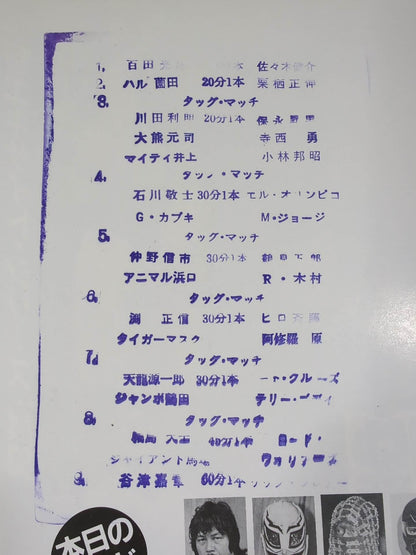 1, 百田 本 佐々木健介
2, ハル薗田 20分1本 栗栖正伸
3, タッグ・マッチ
川田利明 20分1本 保永昇男
大熊元司 寺西 勇
マイティ井上 小林邦昭
4. タッグ・マッチ
石川敬士 30分1本 エル・オリンピコ
G・カブキ M・ジョージ
5. タッグ・マッチ
仲野信市 30分1本
アニマル浜口 R・木村
6. タッグ・マッチ
渕 正信 30分1本 ヒロ斉藤
タイガーマスク 阿修羅 原
7. タッグ・マッチ
天龍源一郎 30分1本 クルーズ
ジャンボ鶴田 テリー・ゴディ
8. タッグ・マッチ
輪島大士 40分1本 ロード・
ジャイアント馬場 ウォリアーズ
9. 谷津嘉章 60分1本
本日の